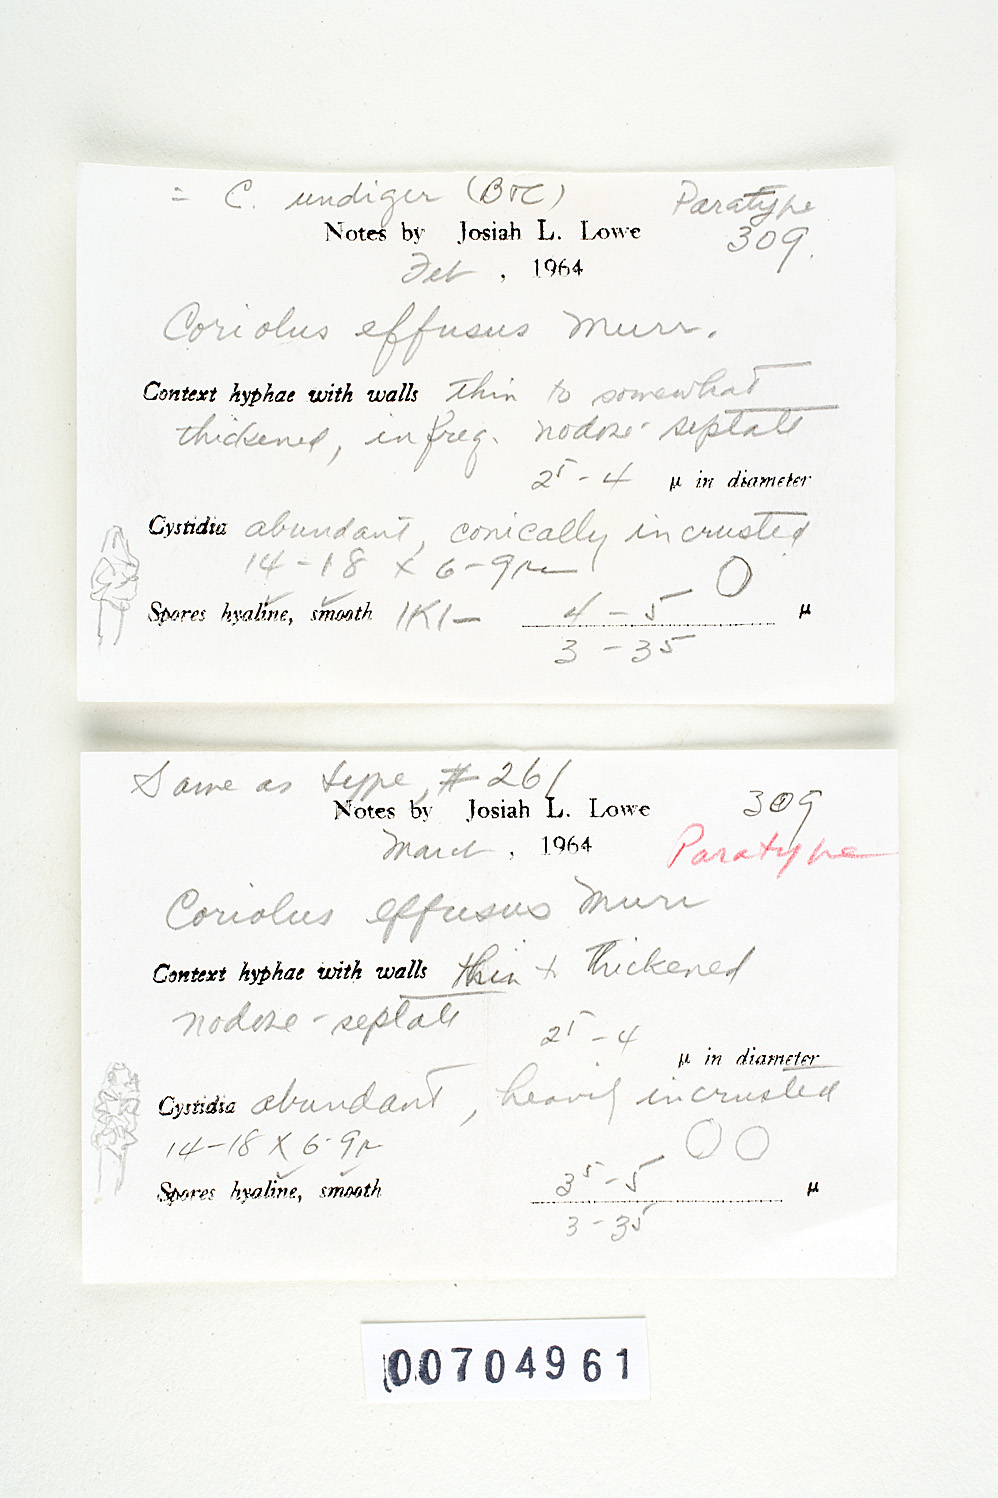 = C. undiger (B&C)
Paratype
Notes by Josiah L. Lowe
309.
Feb , 1964
Coriolus effusus Murr.
Context hyphae with walls thin to somewhat
thickened, infreq. nodose-septate
2⁵ - 4 µ in diameter
Cystidia abundant, conically incrusted
14-18 x 6-9µ
Spores hyaline, smooth IKI- 4 - 5 µ
3 - 3⁵
Same as type, # 261
Notes by Josiah L. Lowe
309
March , 1964
Paratype
Coriolus effusus Murr
Context hyphae with walls thin to thickened
nodose-septate
2⁵ - 4 µ in diameter
Cystidia abundant, heavily incrusted
14-18 X 6-9µ
Spores hyaline, smooth 3⁵ - 5 µ
3 - 3⁵
00704961